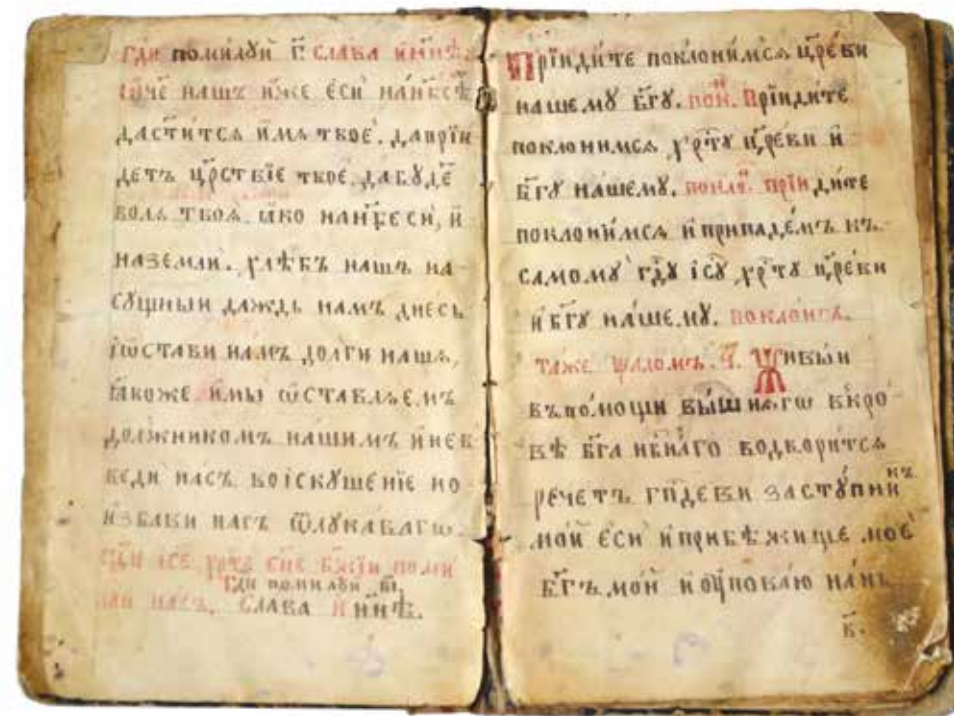 Гд҃и помилꙋй г҃. слава и҆ нн҃ѣ
Ѿч҃е нашъ и҆же є҆сѝ нан҃бсѣ
дастит́сѧ и҆мѧ твоѐ. даврїи
детъ цр҃ствїе твоѐ, дабꙋде
волѧ твоѧ. ꙗ҆ко нан҃беси́, и҆
наземли. хлѣбъ нашъ на
сꙋщныи даждь намъ днесь
і҆ѡ҆стави намъ долги нашѧ,
ꙗ҆коже и҆мы ѡ҆ставлѧемъ
должникомъ нашимъ и҆нев
веди насъ воіскꙋше́нїе но
и҆збави насъ ѿлꙋкавагѡ.
гд҃и ісе хрт҃е сн҃е бж҃їи поми
Гд҃и помилꙋй в҃і,
лꙋй насъ. слава и҆ нн҃ѣ.
Прїиди́те поклони́мсѧ цр҃еви
нашемꙋ бг҃ꙋ. пок. Прїиди́те
поклонимсѧ хрт҃ꙋ цр҃еви и҆
бг҃ꙋ на́шемꙋ. покло. прїиди́те
поклони́мсѧ и҆припаде́мъ къ
самомꙋ̀ гд҃ꙋ і҆сꙋ҃ хрт҃ꙋ цр҃е́ви
и҆ бг҃ꙋ на́шемꙋ. поклонсѧ.
таже ѱаломъ. ч҃. Живы́и
въпо́мощи вы́шнѧгѡ вкро́
вѣ бг҃а нб҃на́го водвори́тсѧ
рече́тъ гд҃еви застꙋ́пникъ
мо́й є҆сѝ и҆прибѣ́жище моѐ
бг҃ъ мо́й и҆ ᲂу҆поваю нань
в҃.